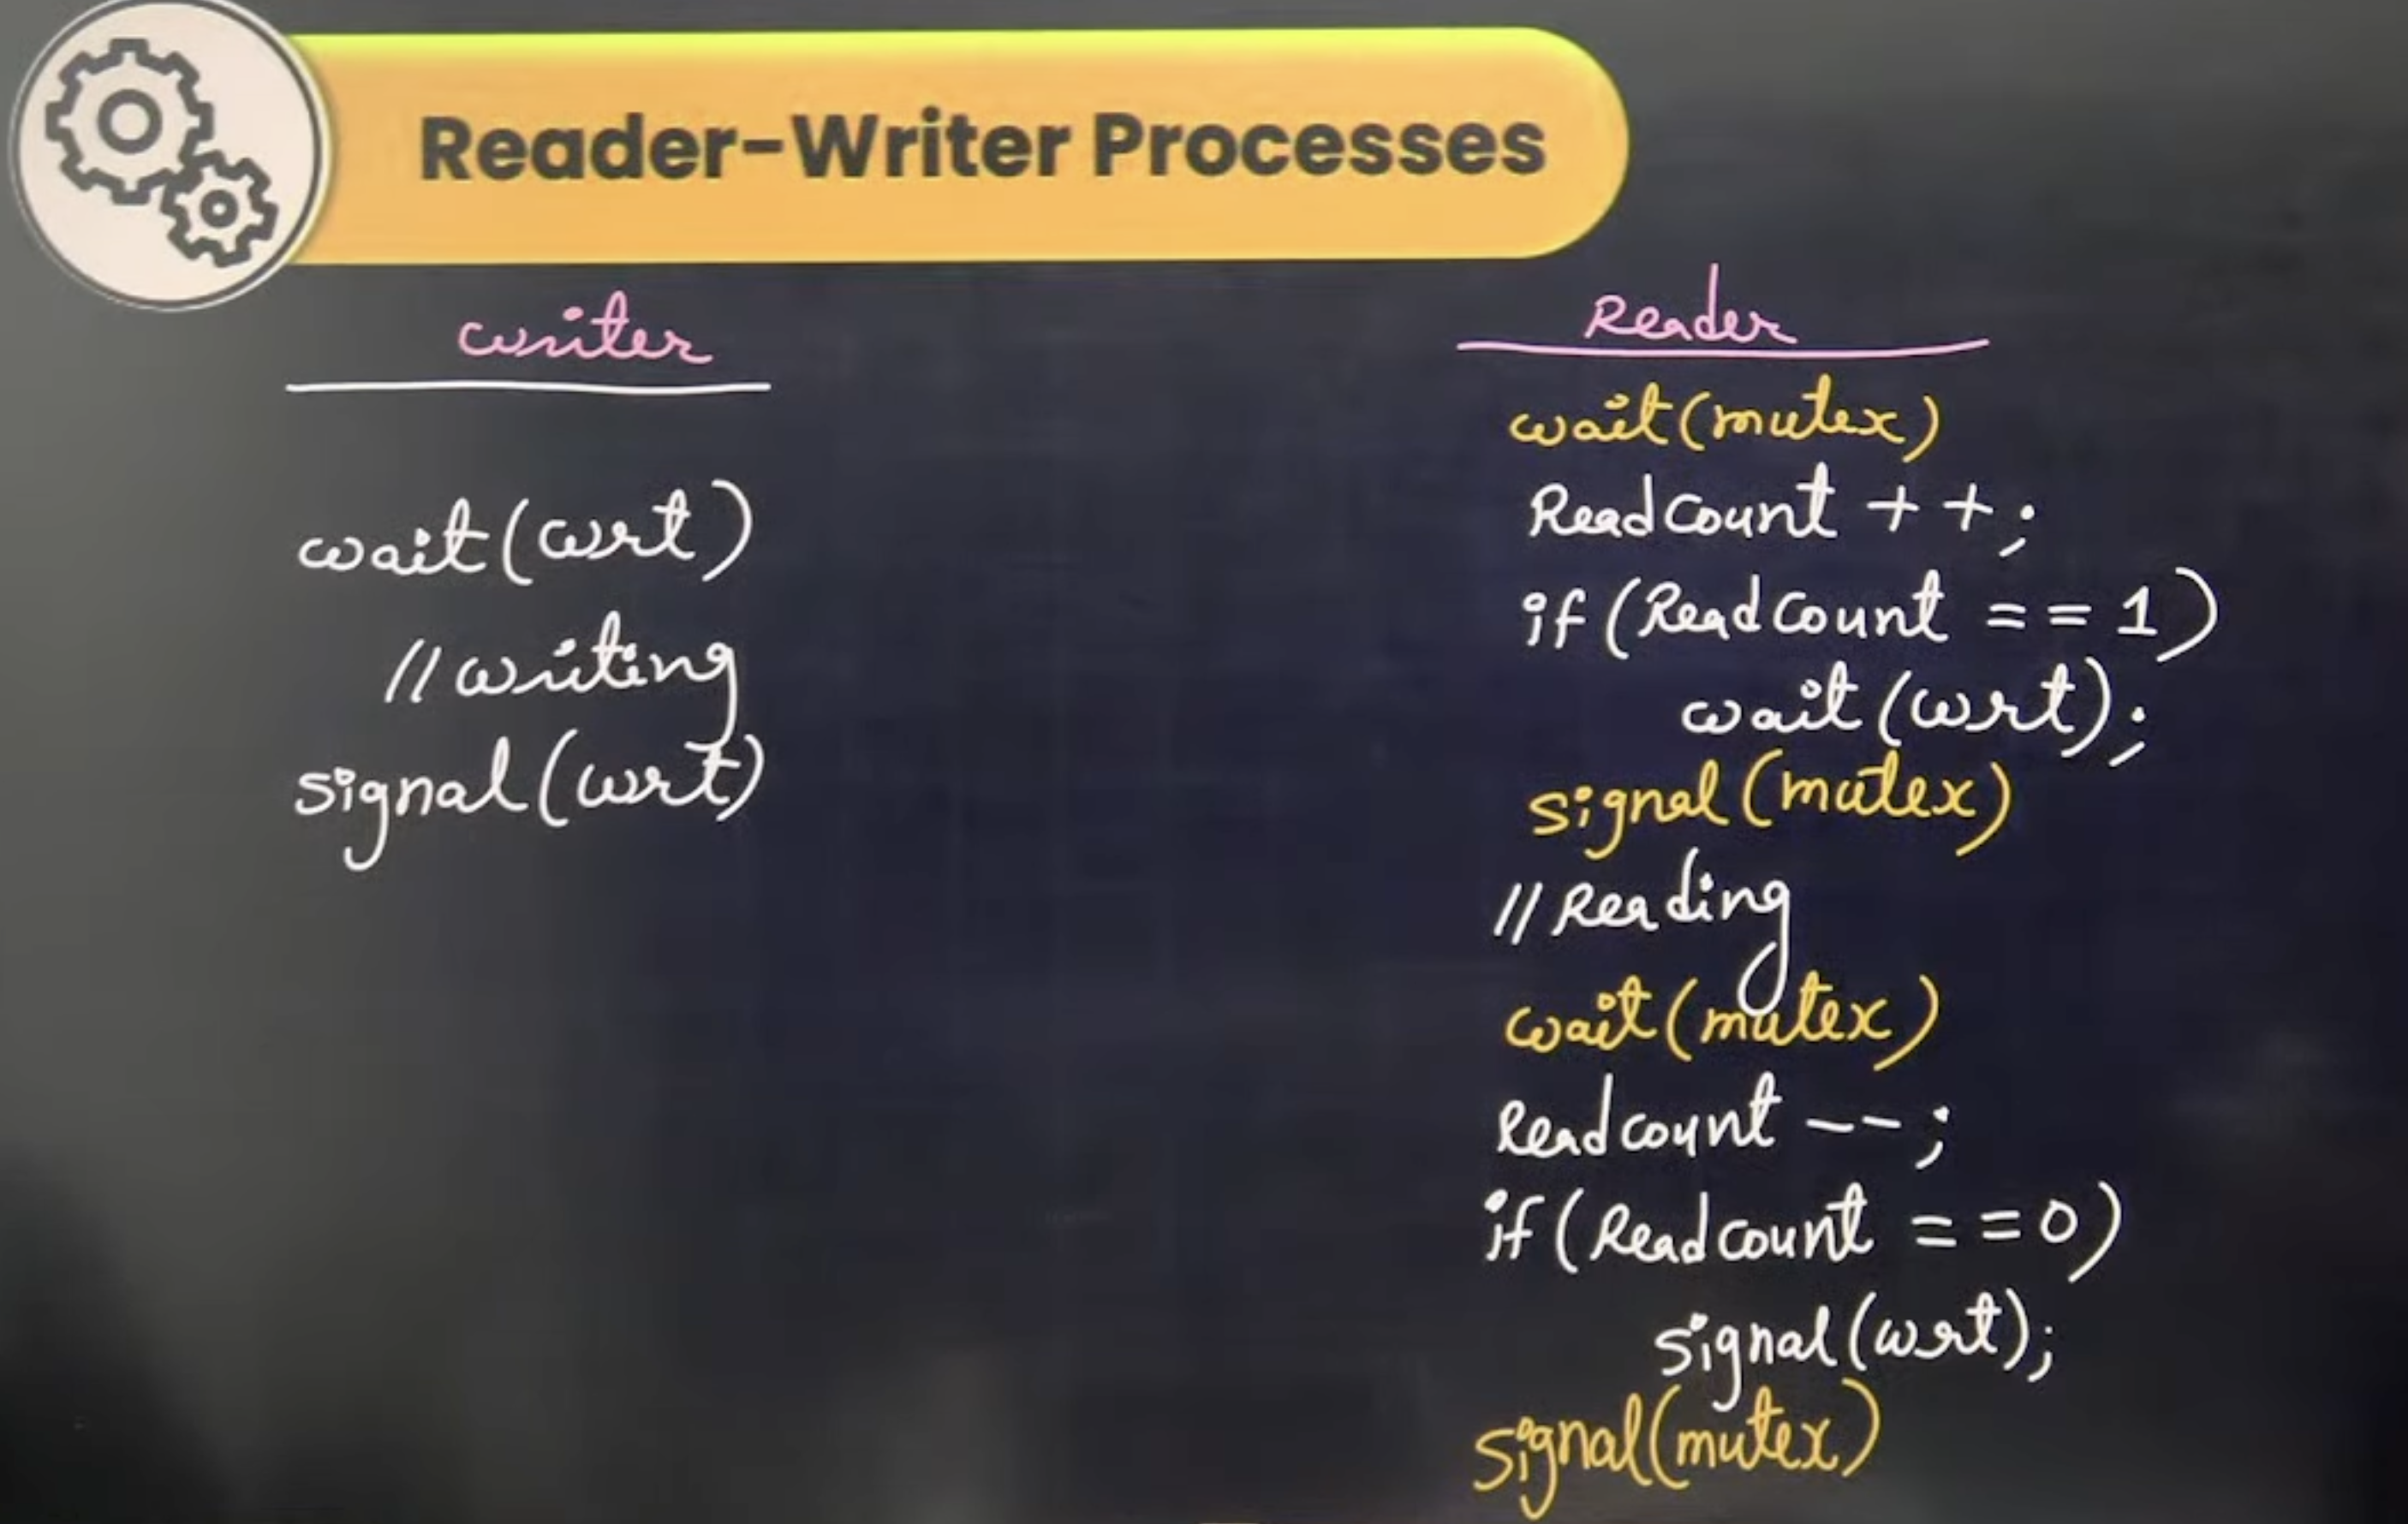 Reader-Writer Processes
writer
wait(wrt)
//writing
signal(wrt)
Reader
wait(mutex)
Readcount ++;
if(Readcount == 1)
wait(wrt);
signal(mutex)
//Reading
wait(mutex)
Readcount --;
if(Readcount ==0)
signal(wrt);
signal(mutex)